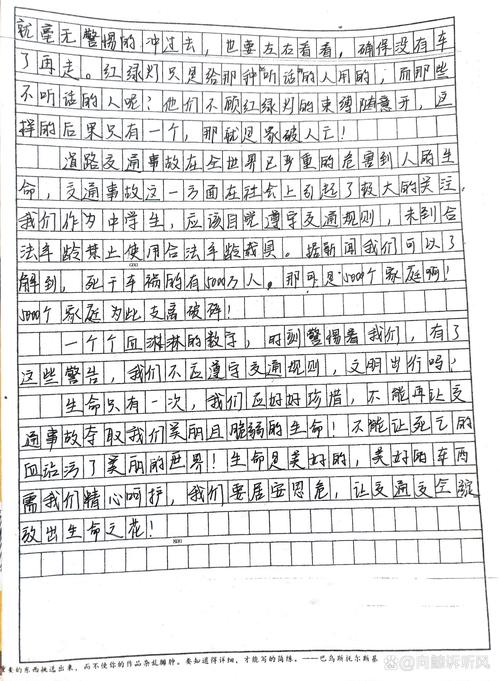 就毫无警惕的冲过去，也要左右看看，确保没有车
了再走。红绿灯只是给那种“听话”的人用的，而那些
不听话的人呢？他们不顾红绿灯的束缚随意开，这
择的后果只有一个，那就是家破人亡！
道路交通事故在全世界已严重的危害到人的生
命，交通事故这一方面在社会上引起了极大的关注。
我们作为中学生，应该自觉遵守交通规则，未到合
法年龄禁止使用合法年龄载具。据新闻我们可以了
600
解到，死于车祸的有5000万人。那可是5000个家庭啊！
5000个家庭为此支离破碎！
一个个血淋淋的数字，时刻警惕着我们，有了
这些警告，我们不应遵守交通规则，文明出行吗！
生命只有一次，我们应好好珍惜，不能再让交
通事故夺取我们美丽且脆弱的生命！不能让死亡的
血玷污了美丽的世界！生命是美好的，美好的东西
需我们精心呵护，我们要居安思危，让交通安全绽
放出生命之花！
800
重要的东西挑选出来，而不使你的作品杂故臃肿。要知道得详细，才能写的简练。——巴乌斯托尔斯基
向鲸诉听风